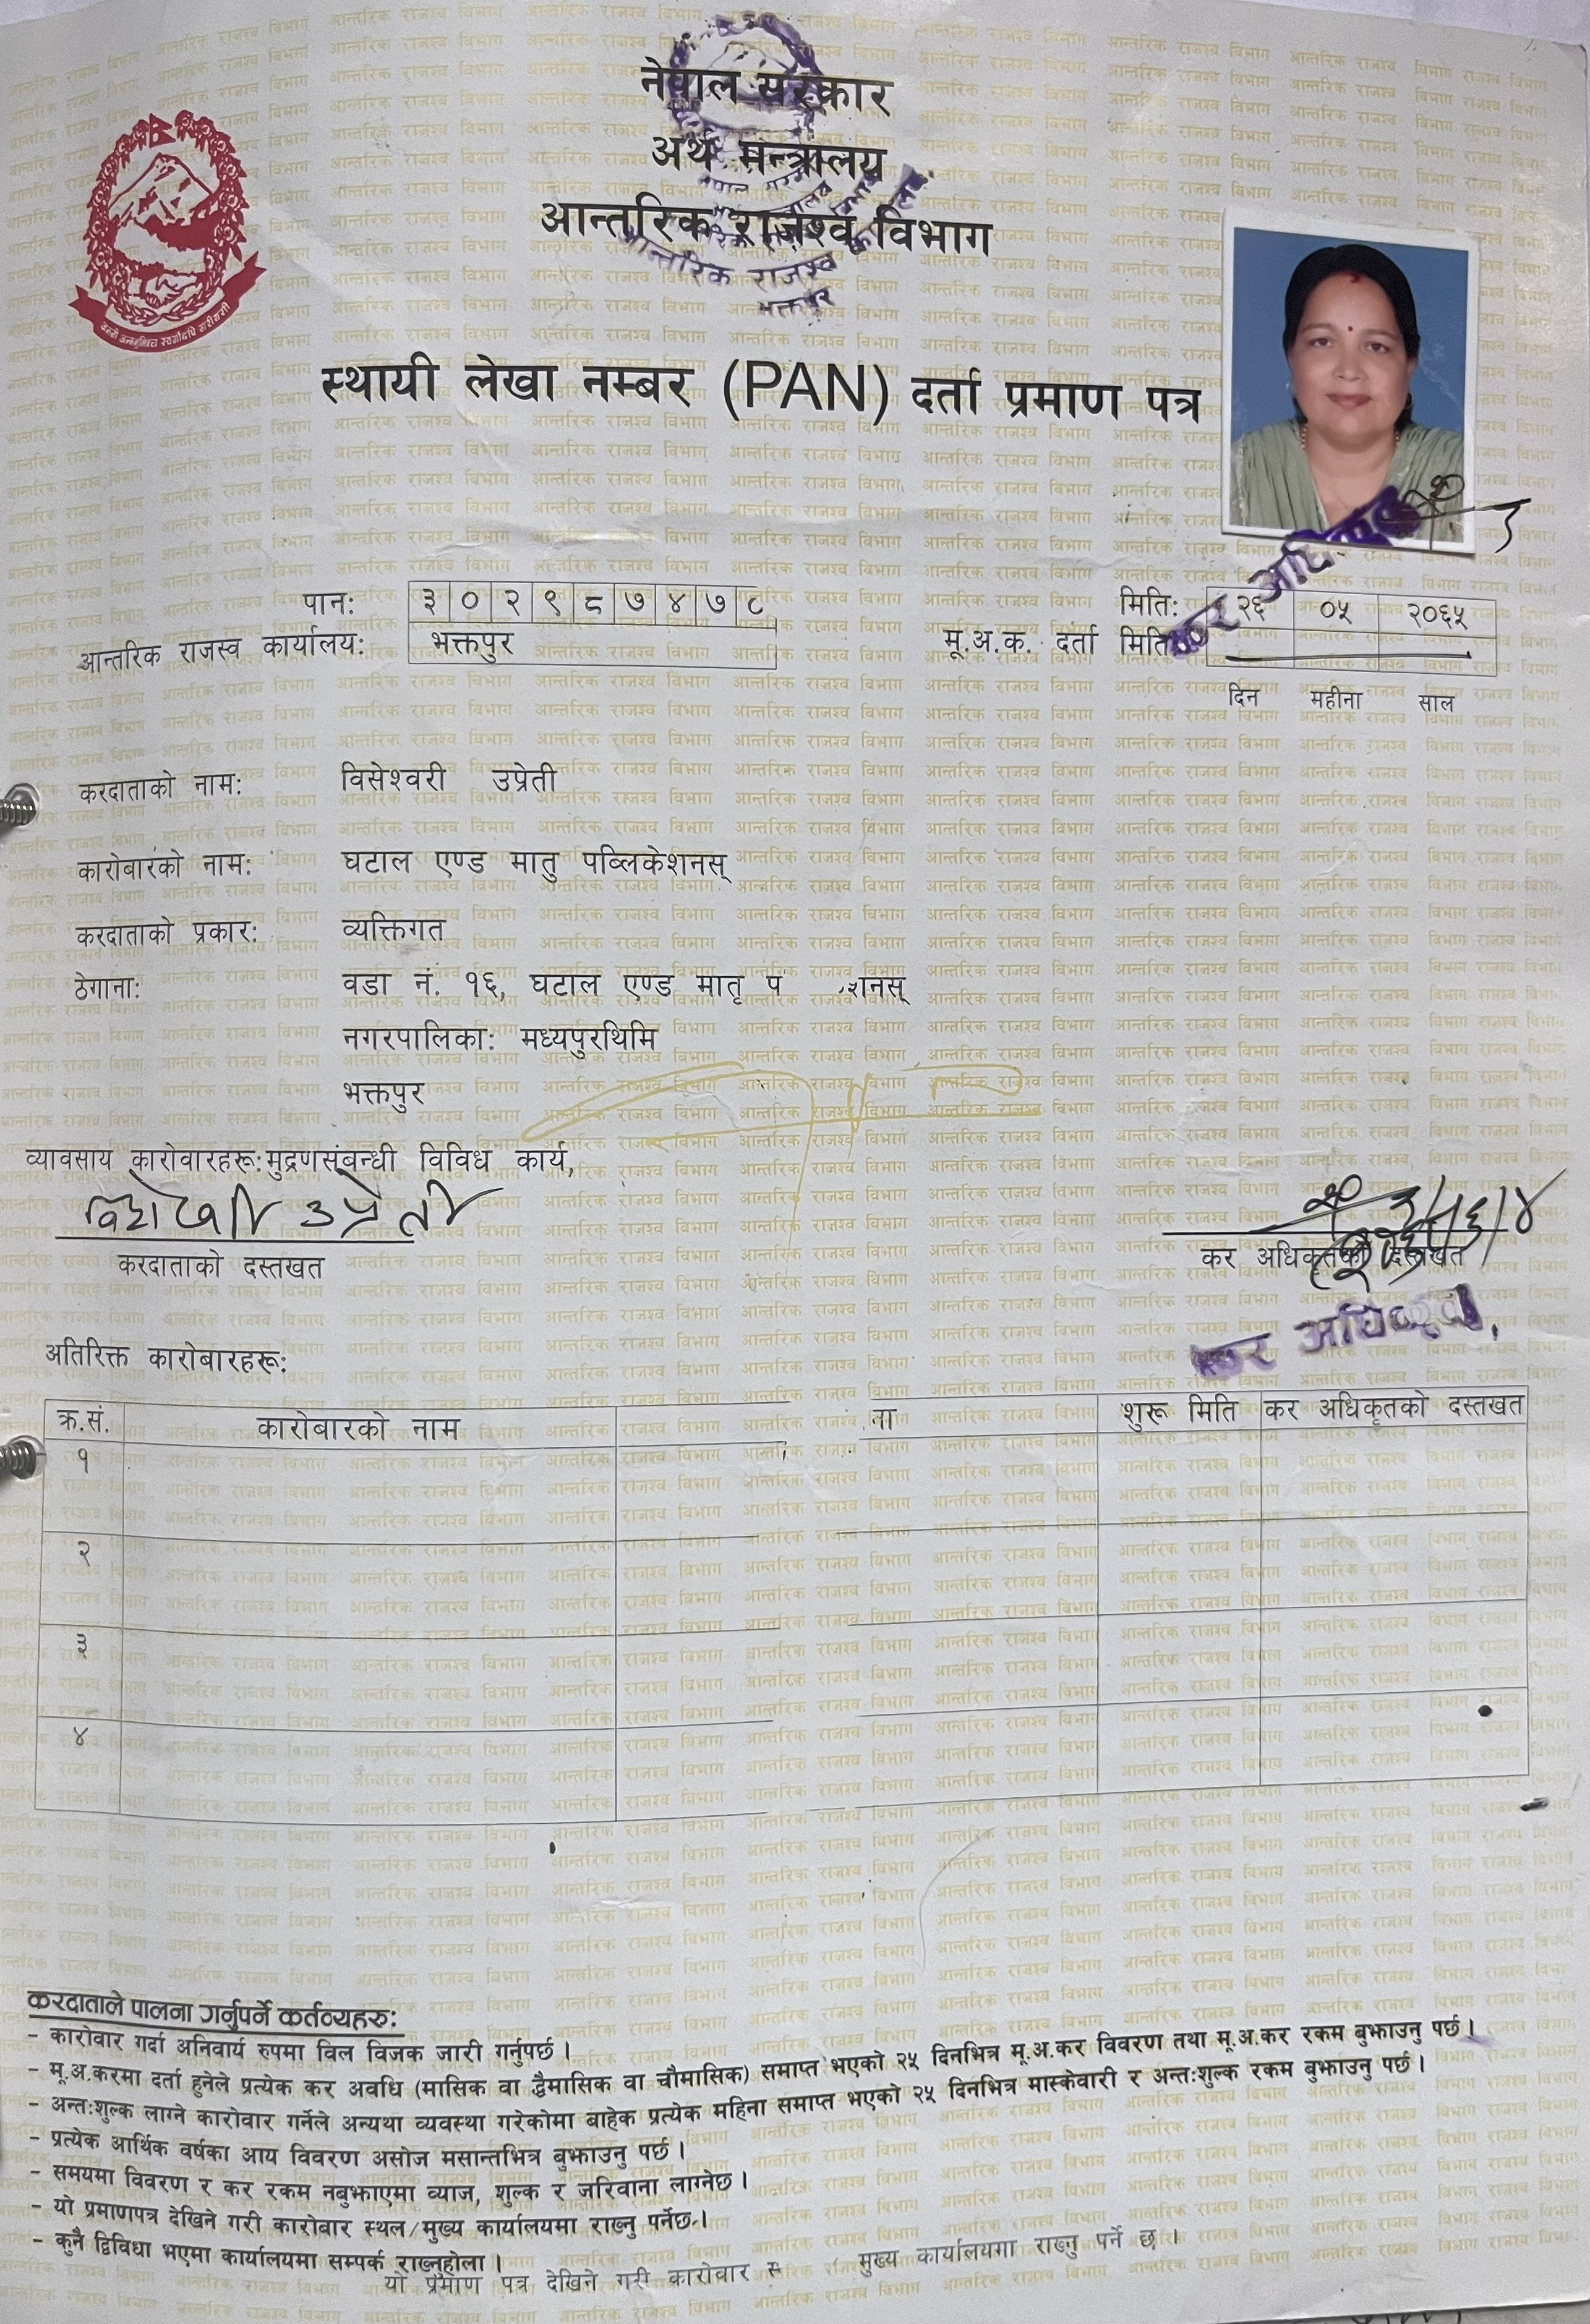 नेपाल सरकार
अर्थ मन्त्रालय
आन्तरिक राजश्व विभाग
स्थायी लेखा नम्बर (PAN) दर्ता प्रमाण पत्र
पान: ३ ० २ ९ ८ ७ ४ ७ ८
मिति: २६ ०५ २०६५
आन्तरिक राजस्व कार्यालय: भक्तपुर
मू.अ.क. दर्ता मिति
दिन महीना साल
कर अधिकृत
करदाताको नाम: विसेश्वरी उप्रेती
कारोबारको नाम: घटाल एण्ड मातृ पब्लिकेशनस्
करदाताको प्रकार: व्यक्तिगत
ठेगाना: वडा नं. १६, घटाल एण्ड मातृ प शनस्
नगरपालिका: मध्यपुरथिमि
भक्तपुर
व्यावसाय कारोवारहरू: मुद्रणसंबन्धी विविध कार्य,
उप्रेती
करदाताको दस्तखत
कर अधिकृतको दस्तखत
कर अधिकृत
अतिरिक्त कारोबारहरू:
क्र.सं. कारोबारको नाम ना शुरू मिति कर अधिकृतको दस्तखत
१
२
३
४
करदाताले पालना गर्नुपर्ने कर्तव्यहरु:
- कारोवार गर्दा अनिवार्य रुपमा विल विजक जारी गर्नुपर्छ ।
- मू.अ.करमा दर्ता हुनेले प्रत्येक कर अवधि (मासिक वा द्वैमासिक वा चौमासिक) समाप्त भएको २५ दिनभित्र मू.अ.कर विवरण तथा मू.अ.कर रकम बुझाउनु पर्छ ।
- अन्तःशुल्क लाग्ने कारोवार गर्नेले अन्यथा व्यवस्था गरेकोमा बाहेक प्रत्येक महिना समाप्त भएको २५ दिनभित्र मास्केवारी र अन्तःशुल्क रकम बुझाउनु पर्छ ।
- प्रत्येक आर्थिक वर्षका आय विवरण असोज मसान्तभित्र बुझाउनु पर्छ ।
- समयमा विवरण र कर रकम नबुझाएमा व्याज, शुल्क र जरिवाना लाग्नेछ ।
- यो प्रमाणपत्र देखिने गरी कारोबार स्थल/मुख्य कार्यालयमा राख्नु पर्नेछ ।
- कुनै द्विविधा भएमा कार्यालयमा सम्पर्क राख्नुहोला ।
यो प्रमाण पत्र देखिने गरी कारोवार स मुख्य कार्यालयमा राख्नु पर्ने छ ।